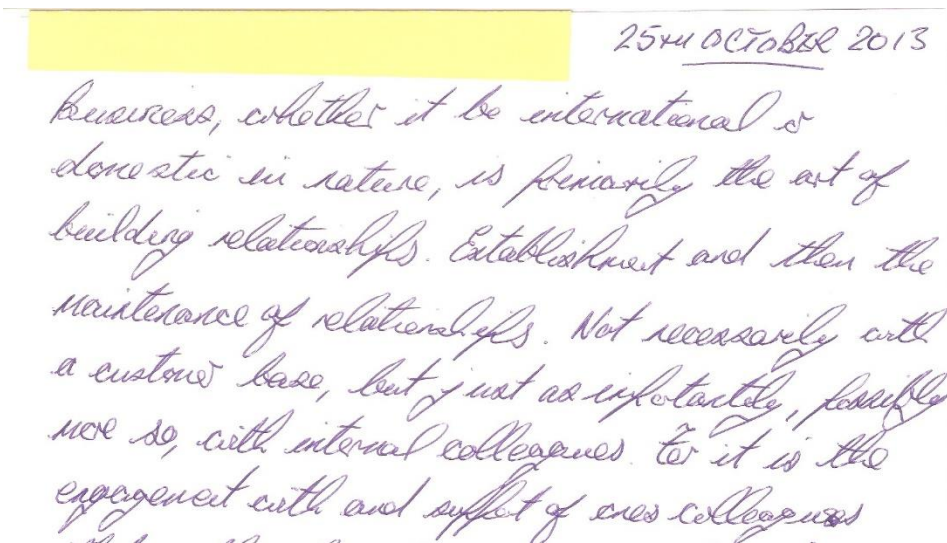 25TH OCTOBER 2013
Business, whether it be international or
domestic in nature, is primarily the art of
building relationships. Establishment and then the
maintenance of relationships. Not necessarily with
a customer base, but just as importantly, possibly
more so, with internal colleagues. For it is the
engagement with and support of ones colleagues